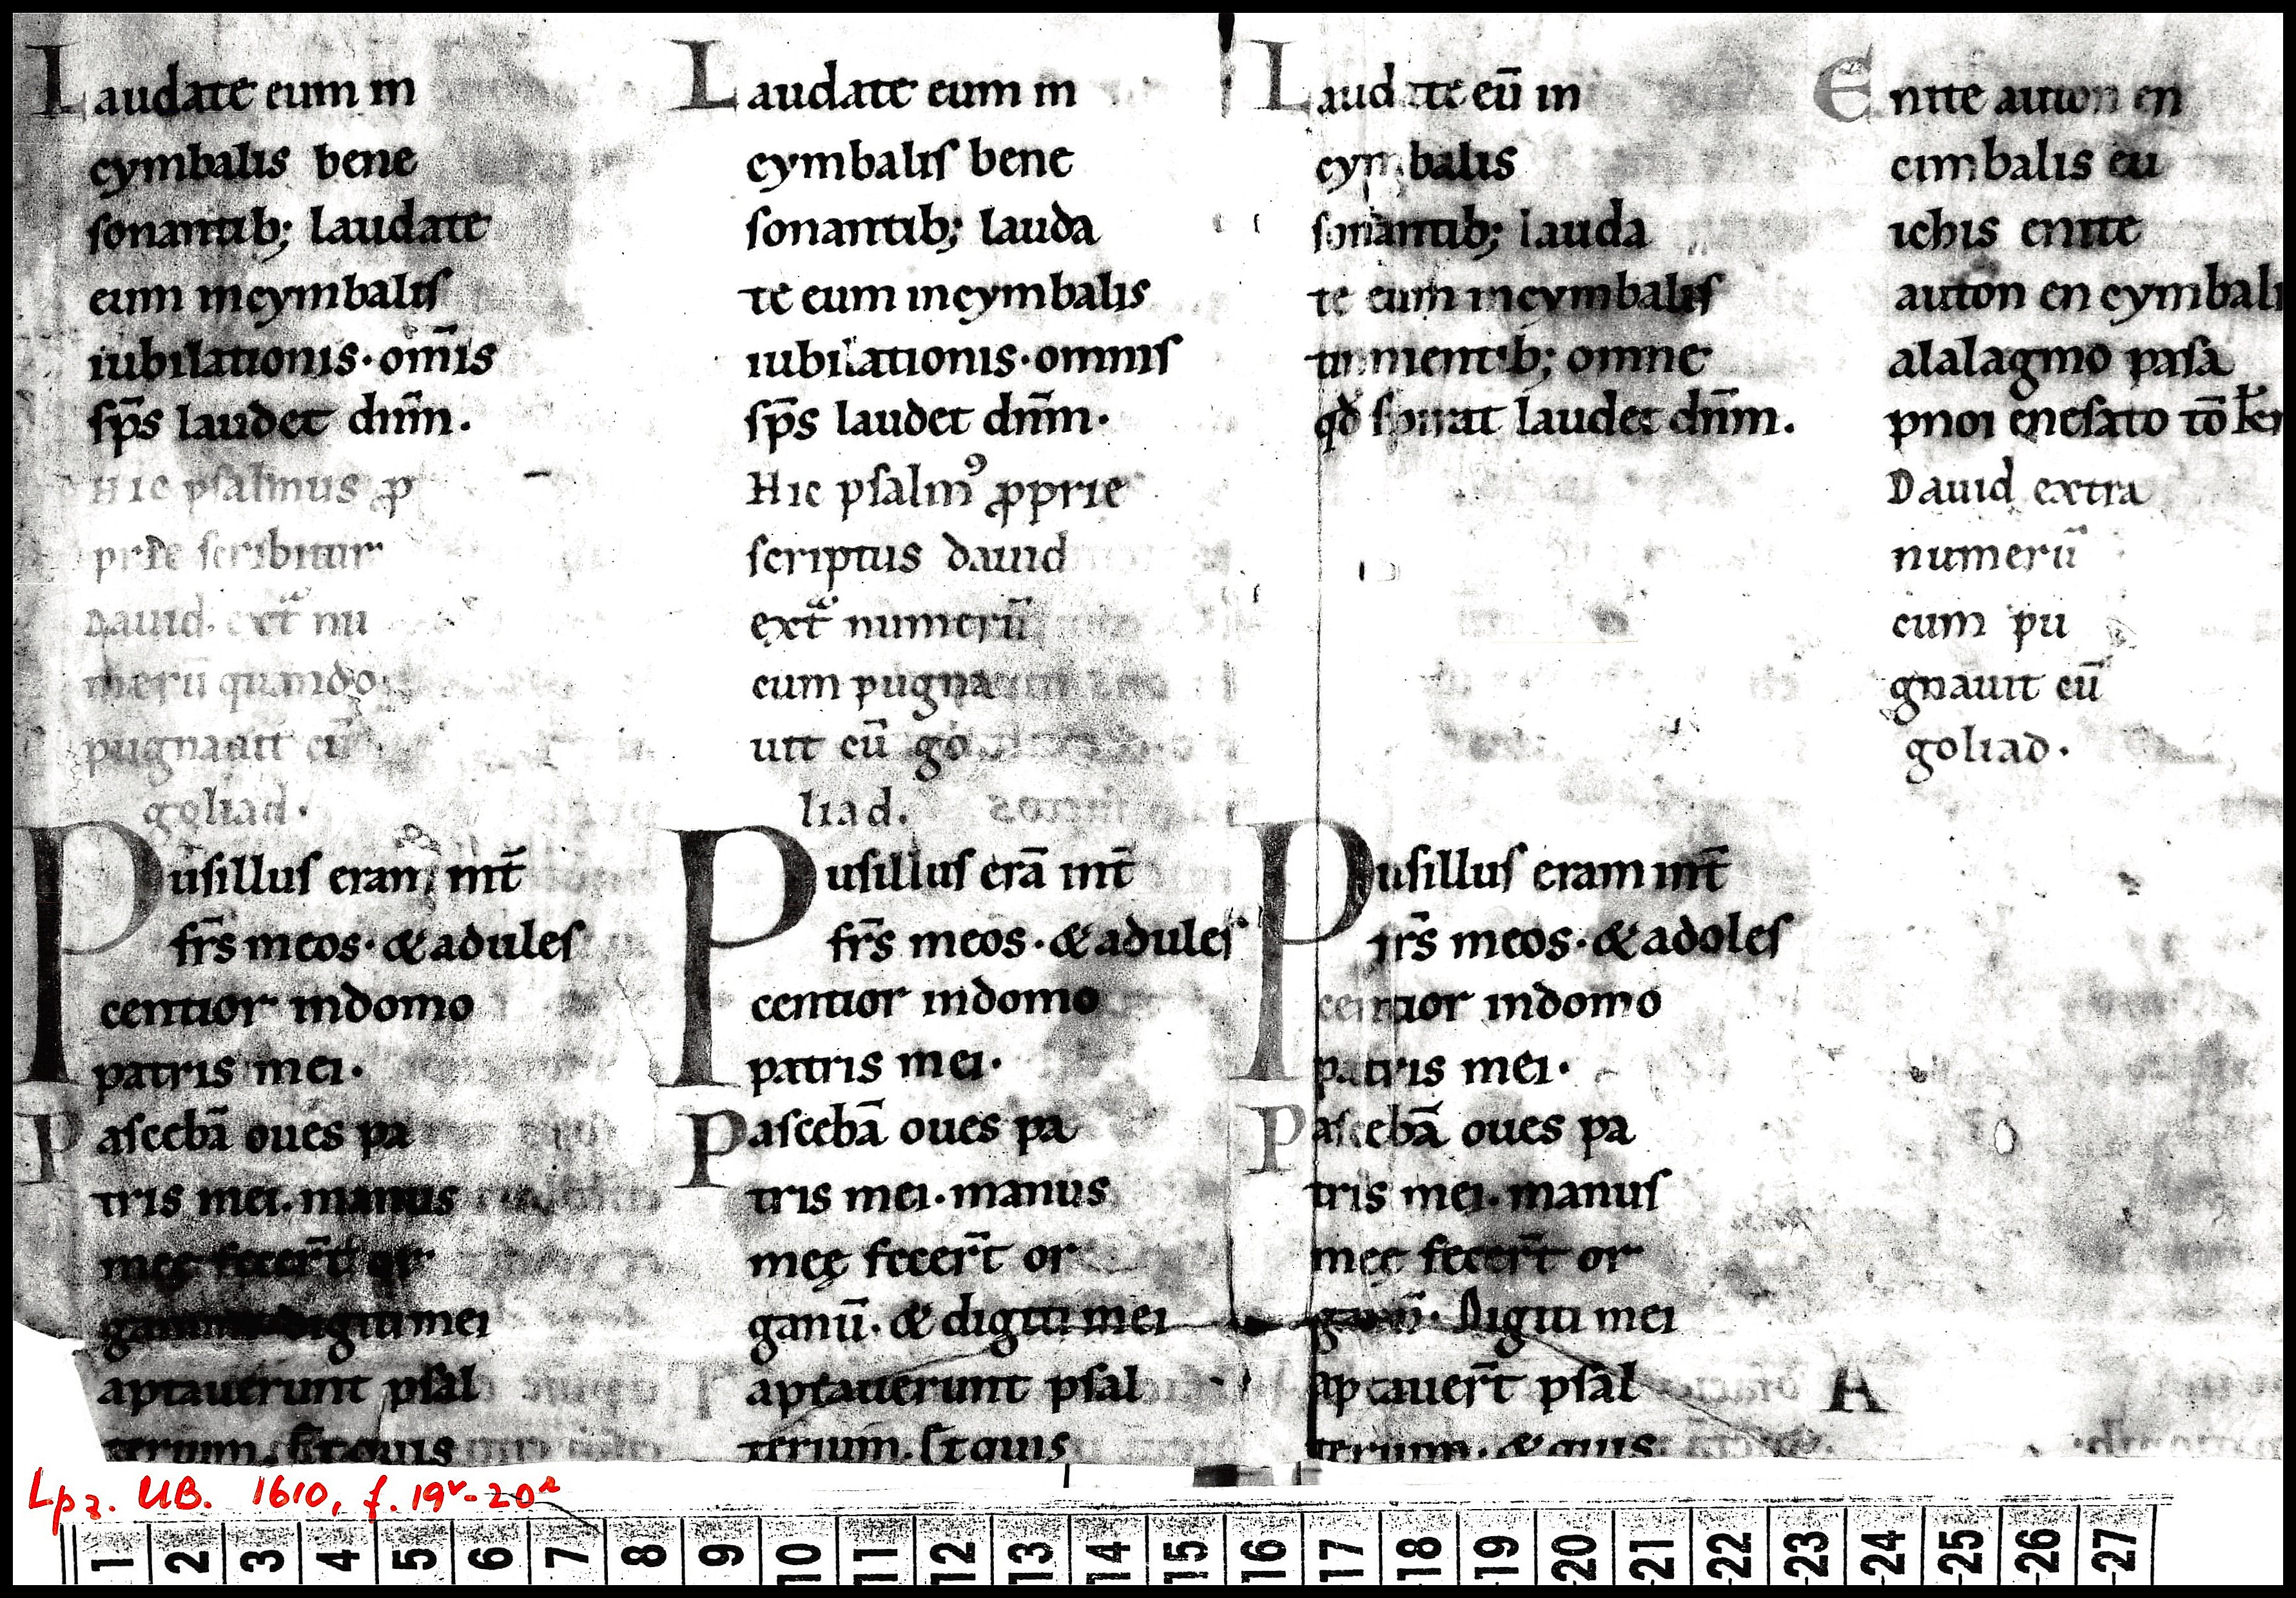 Laudate eum in
cymbalis bene
sonantib; laudate
eum incymbalis
iubilationis · om̄is
sp̄s laudet dn̄m.
Hic psalmus ꝓ
prie scribitur
Dauid. extᷓ nu
merū quando
pugnauit cū
goliad.
Pusillus eram int̄
fr̄s meos · & adules
centior indomo
patris mei.
Pascebā oues pa
tris mei. manus
meę fecer̄t or
digiti mei
aptauerunt psal
terium. quis
Laudate eum in
cymbalis bene
sonantib; lauda
te eum incymbalis
iubilationis · omnis
sp̄s laudet dn̄m.
Hic psalmꝰ ꝓprie
scriptus dauid
extᷓ numerū
cum pugna
uit cū go
liad.
Pusillus erā int̄
fr̄s meos · & adules
centior indomo
patris mei.
Pascebā oues pa
tris mei. manus
meę fecer̄t or
ganū. & digiti mei
aptauerunt psal
terium. quis
Laudate eū in
cymbalis
sonantib; lauda
te eum incymbalis
tinnientib; omne
qđ spirat laudet dn̄m.
Pusillus eram int̄
fr̄s meos · & adoles
centior indomo
patris mei.
Pascebā oues pa
tris mei. manus
meę fecer̄t or
ganū. Digiti mei
aptauer̄t psal
terium. & quis
Enite auton en
cimbalis eu
ichis enite
auton en cymbali
alalagmo pasa
pnoi enesato tō
Dauid extra
numerū
cum pu
gnauit cū
goliad.
A
Lpz. UB. 1610, f. 19v-20r
1 2 3 4 5 6 7 8 9 10 11 12 13 14 15 16 17 18 19 20 21 22 23 24 25 26 27